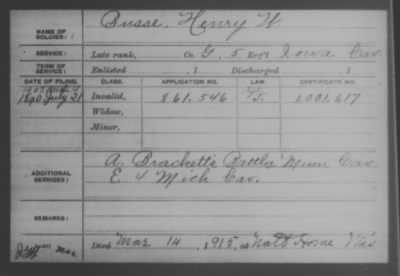 NAME OF SOLDIER: Busse, Henry W.
SERVICE: Late rank, Co. G, 5 Reg't Iowa Cav.
TERM OF SERVICE: Enlisted , 1 Discharged , 1
DATE OF FILING. CLASS. APPLICATION NO. LAW. CERTIFICATE NO.
1890 July 21 Invalid, 861,546 1,001,617
Widow,
Minor,
ADDITIONAL SERVICES: A. Brackett's Battln Minn Cav.
E 4 Mich Cav.
REMARKS:
Died Mar 14, 1915, at Natl Home